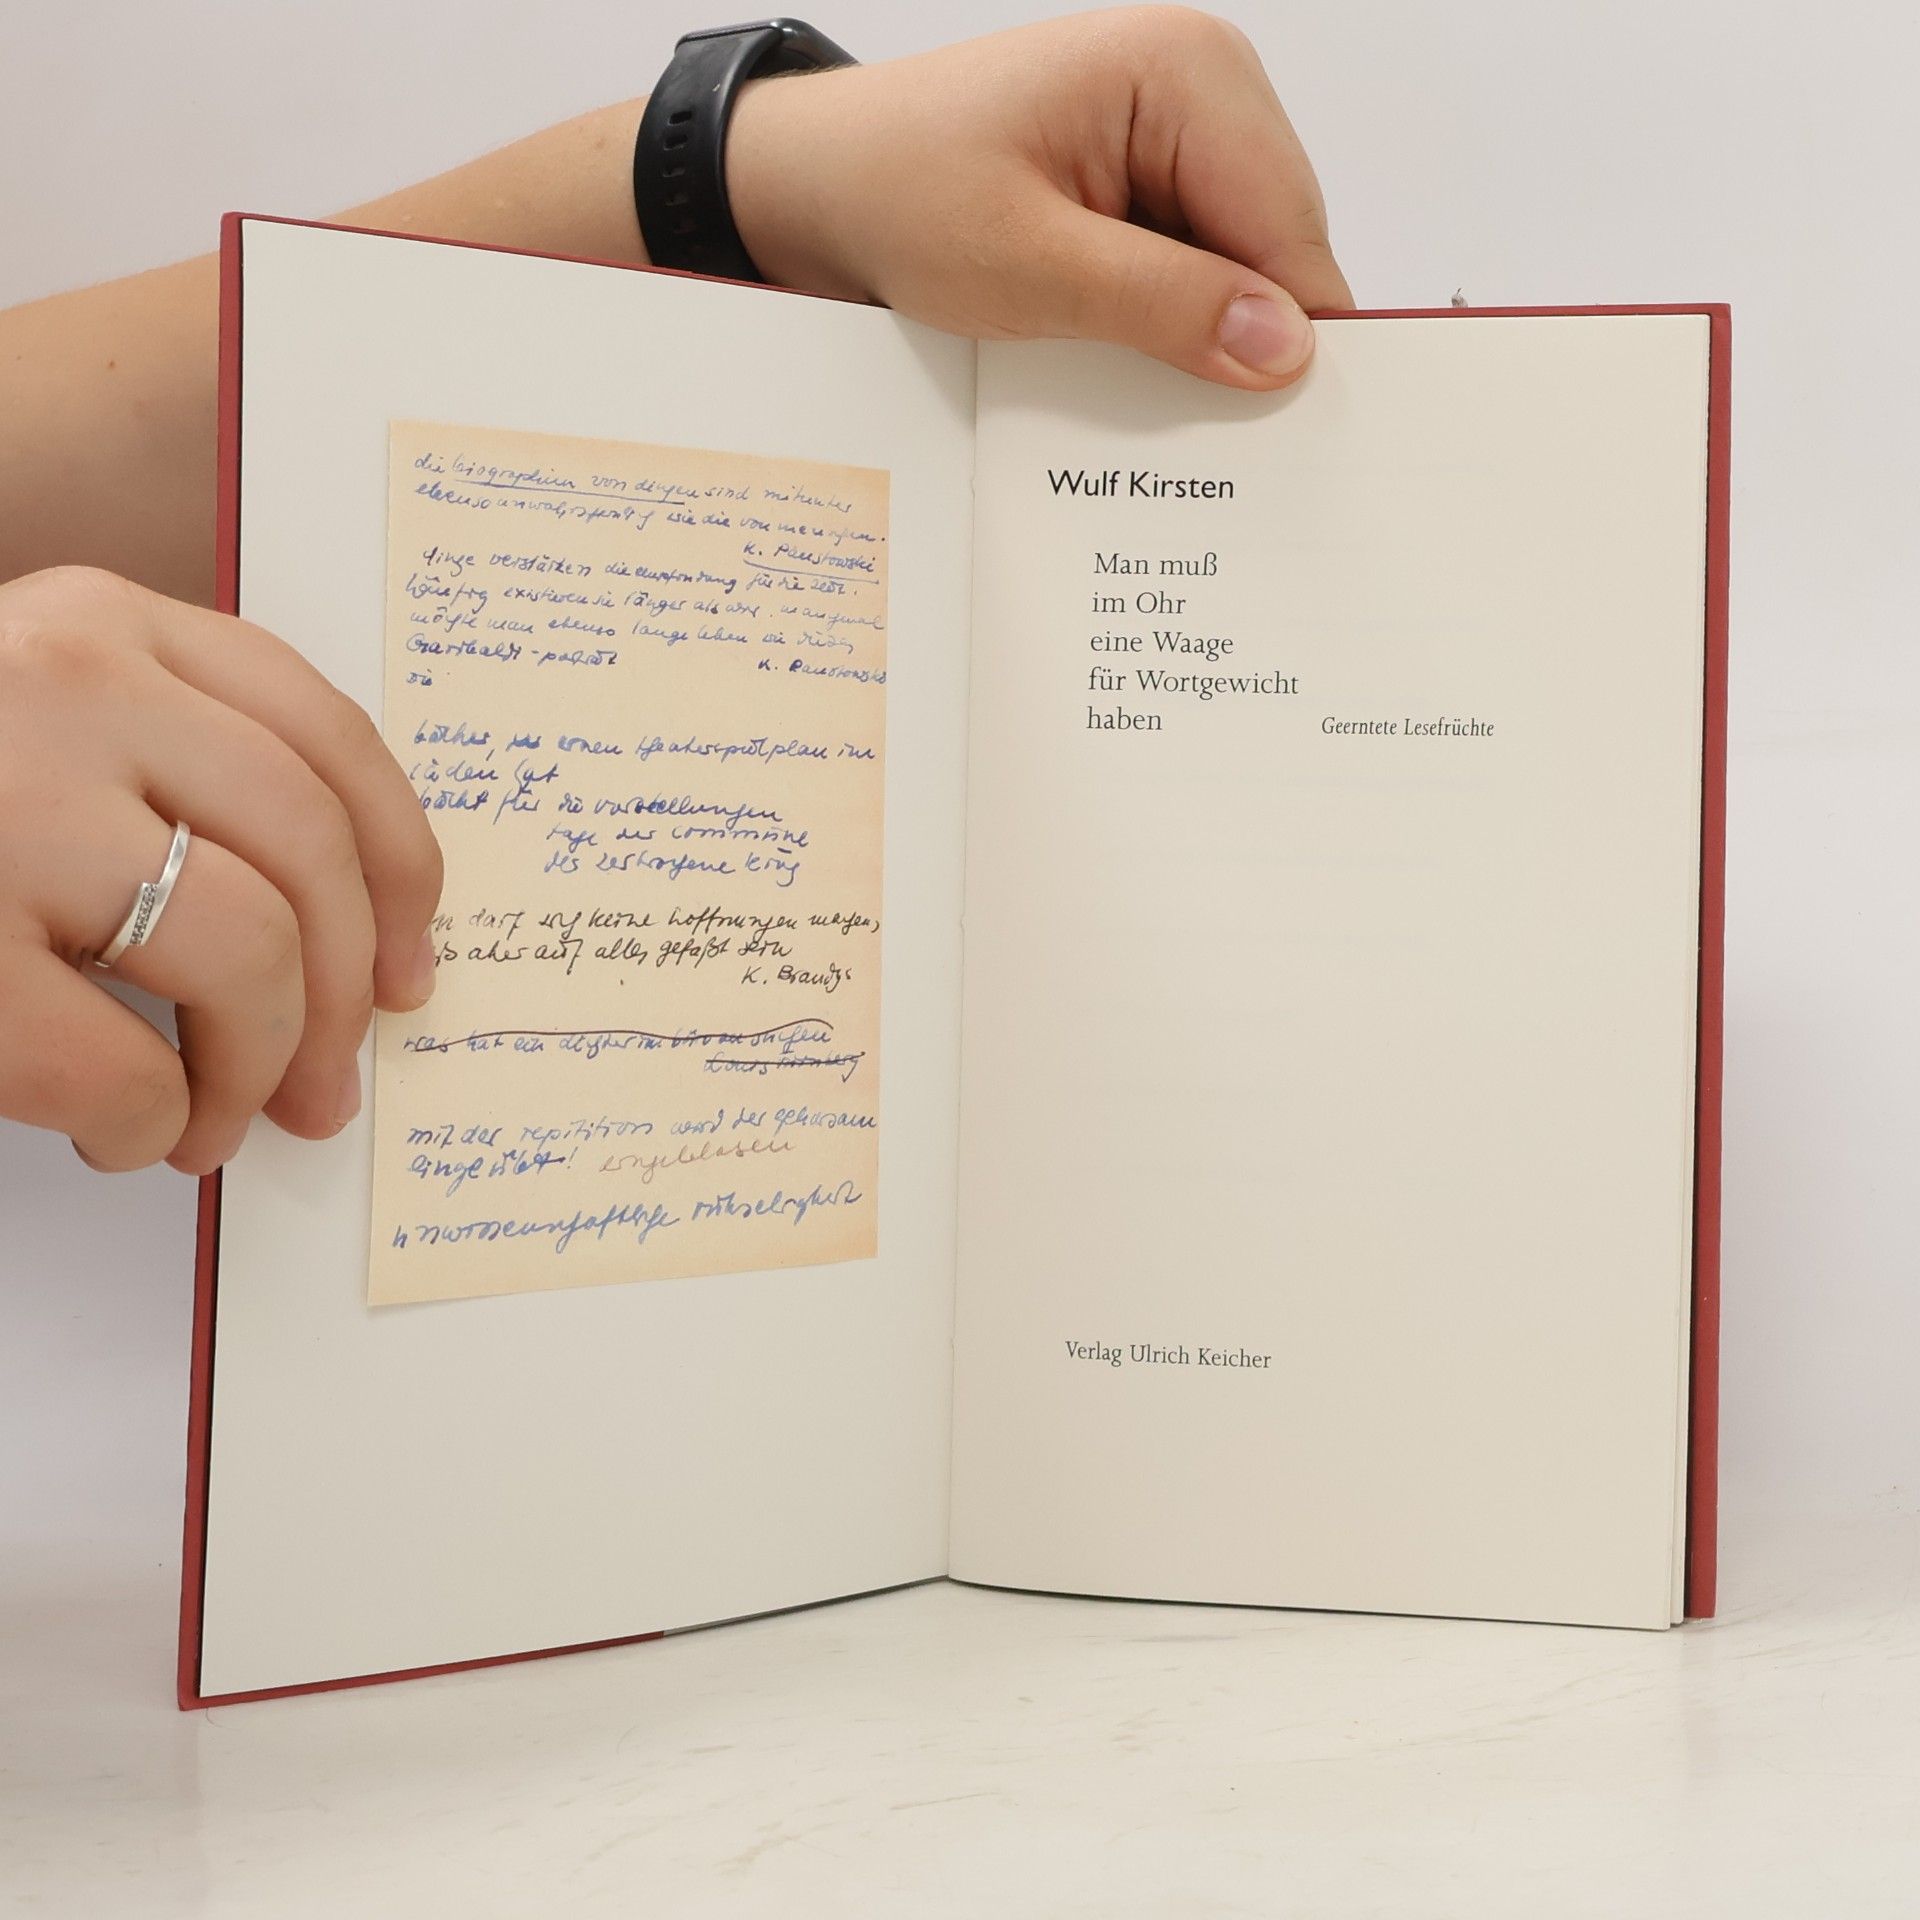 die biographien von dingen sind mitunter
ebenso unwahrscheinlich wie die von menschen.
K. Paustowski
dinge verstärken die empfindung für die zeit.
häufig existieren sie länger als wir. manchmal
möchte man ebenso lange leben wie dieses
Garibaldi-porträt
K. Paustowski
die
einen theaterspielplan im
laden hat
für die vorstellungen
tage der commune
der zerbrochene krug
darf sich keine hoffnungen machen,
aber auf alles gefaßt sein
K. Brandys
was hat ein dichter im büro zu suchen
Louis Fürnberg
mit der repitition wird der gehorsam
eingeübt! eingeblasen
unwissenschaftliche rührseligkeit
Wulf Kirsten
Man muß
im Ohr
eine Waage
für Wortgewicht
haben
Geerntete Lesefrüchte
Verlag Ulrich Keicher